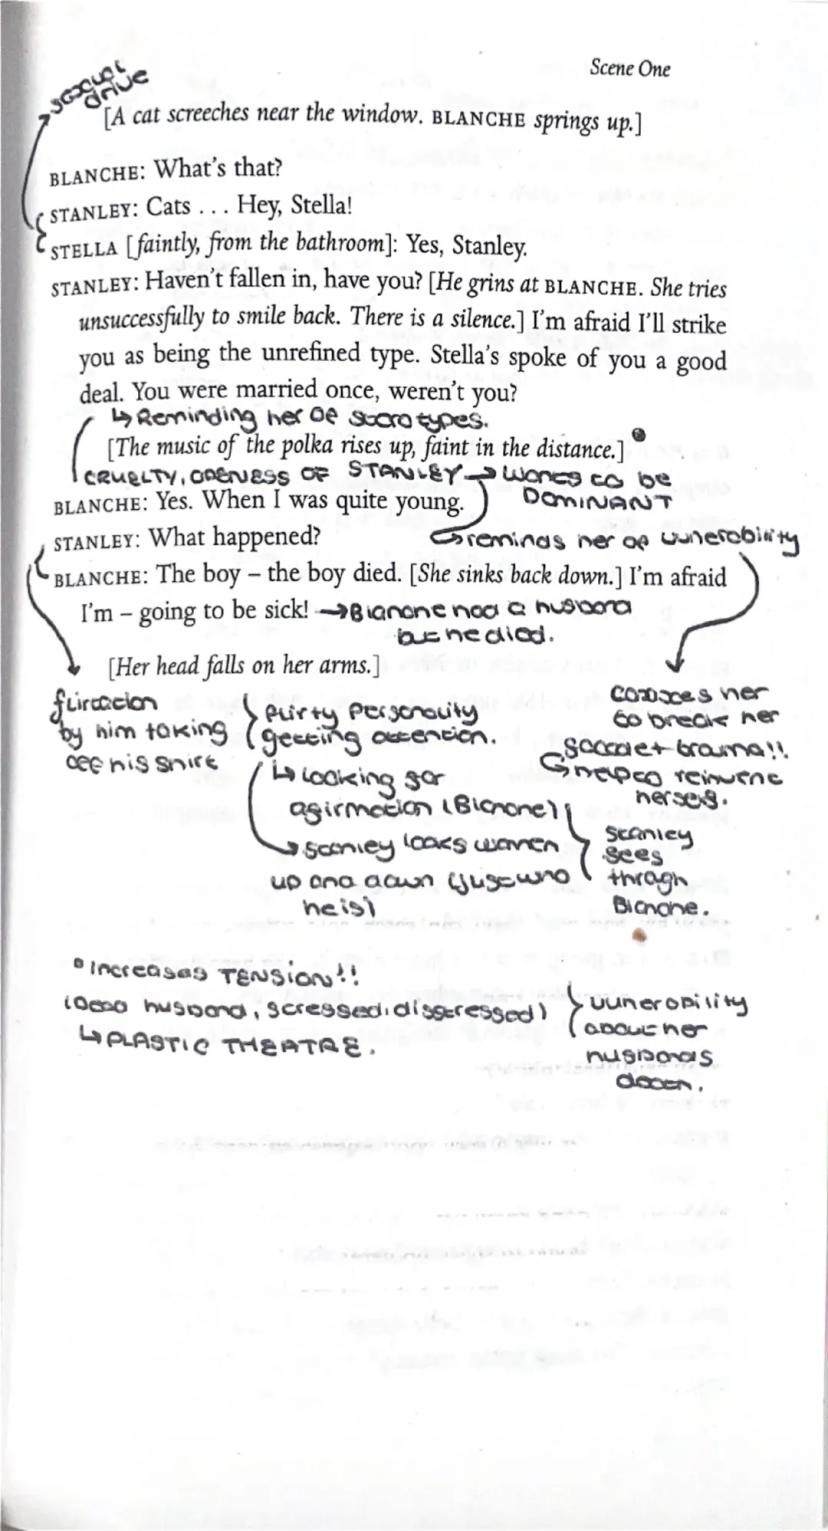 Scene One
sexual
drive
[A cat screeches near the window. BLANCHE springs up.]
BLANCHE: What's that?
STANLEY: Cats . . . Hey, Stella!
STELLA [faintly, from the bathroom]: Yes, Stanley.
STANLEY: Haven't fallen in, have you? [He grins at BLANCHE. She tries
unsuccessfully to smile back. There is a silence.] I'm afraid I'll strike
you as being the unrefined type. Stella's spoke of you a good
deal. You were married once, weren't you?
↳ Reminding her of
[The music of the polka rises up, faint in the distance.]
CRUELTY, OPENESS OF STANLEY → wants to be
DOMINANT
BLANCHE: Yes. When I was quite young.
STANLEY: What happened?
reminds her of vunerability
BLANCHE: The boy – the boy died. [She sinks back down.] I'm afraid
I'm – going to be sick! → Blanche had a husband
but he died.
[Her head falls on her arms.]
flirtation
by him taking
off his shirt
flirty personality
getting attention.
↳ looking for
affirmation (Blanche)
→ Stanley looks women
up and down (just who
he is)
Stanley
sees
through
Blanche.
causes her
to break her
facade + trauma!!
reinvent
herself.
Increases TENSION!!
(Dead husband, stressed, distressed)
↳ PLASTIC THEATRE.
vunerability
about her
husbands
death.